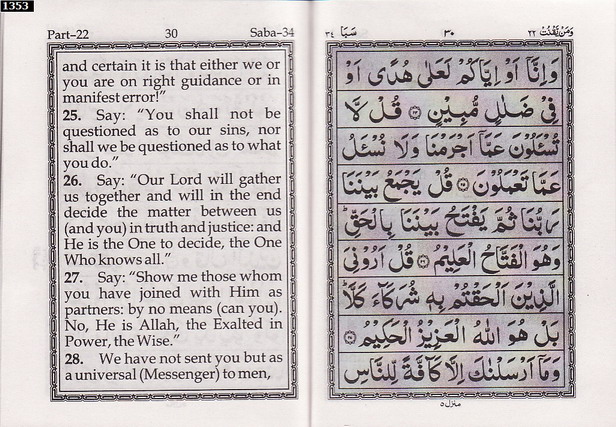 1353
Part-22 30 Saba-34
and certain it is that either we or
you are on right guidance or in
manifest error!”
25. Say: “You shall not be
questioned as to our sins, nor
shall we be questioned as to what
you do.”
26. Say: “Our Lord will gather
us together and will in the end
decide the matter between us
(and you) in truth and justice: and
He is the One to decide, the One
Who knows all.”
27. Say: “Show me those whom
you have joined with Him as
partners: by no means (can you).
No, He is Allah, the Exalted in
Power, the Wise.”
28. We have not sent you but as
a universal (Messenger) to men,
وَمَنْ يَّقْنُتْ ٢٢ ٣٠ سَبَا ٣٤
وَاِنَّاۤ اَوْ اِيَّاكُمْ لَعَلٰى هُدًى اَوْ
فِىْ ضَلٰلٍ مُّبِيْنٍ ۝٢٤ قُلْ لَّا
تُسْـَٔلُوْنَ عَمَّاۤ اَجْرَمْنَا وَلَا نُسْـَٔلُ
عَمَّا تَعْمَلُوْنَ ۝٢٥ قُلْ يَجْمَعُ بَيْنَنَا
رَبُّنَا ثُمَّ يَفْتَحُ بَيْنَنَا بِالْحَقِّ ؕ
وَهُوَ الْفَتَّاحُ الْعَلِيْمُ ۝٢٦ قُلْ اَرُوْنِىَ
الَّذِيْنَ اَلْحَقْتُمْ بِهٖ شُرَكَآءَ كَلَّا ؕ
بَلْ هُوَ اللّٰهُ الْعَزِيْزُ الْحَكِيْمُ ۝٢٧
وَمَاۤ اَرْسَلْنٰكَ اِلَّا كَآفَّةً لِّلنَّاسِ
منزل ٥